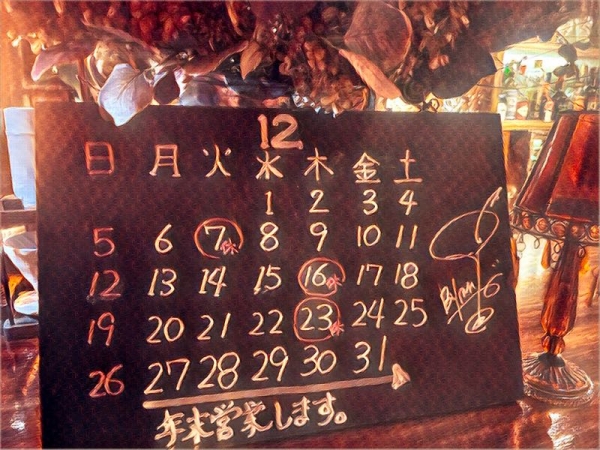 12
日 月 火 水 木 金 土
1 2 3 4
5 6 7休 8 9 10 11
12 13 14 15 16休 17 18
19 20 21 22 23休 24 25
26 27 28 29 30 31
年末営業します。